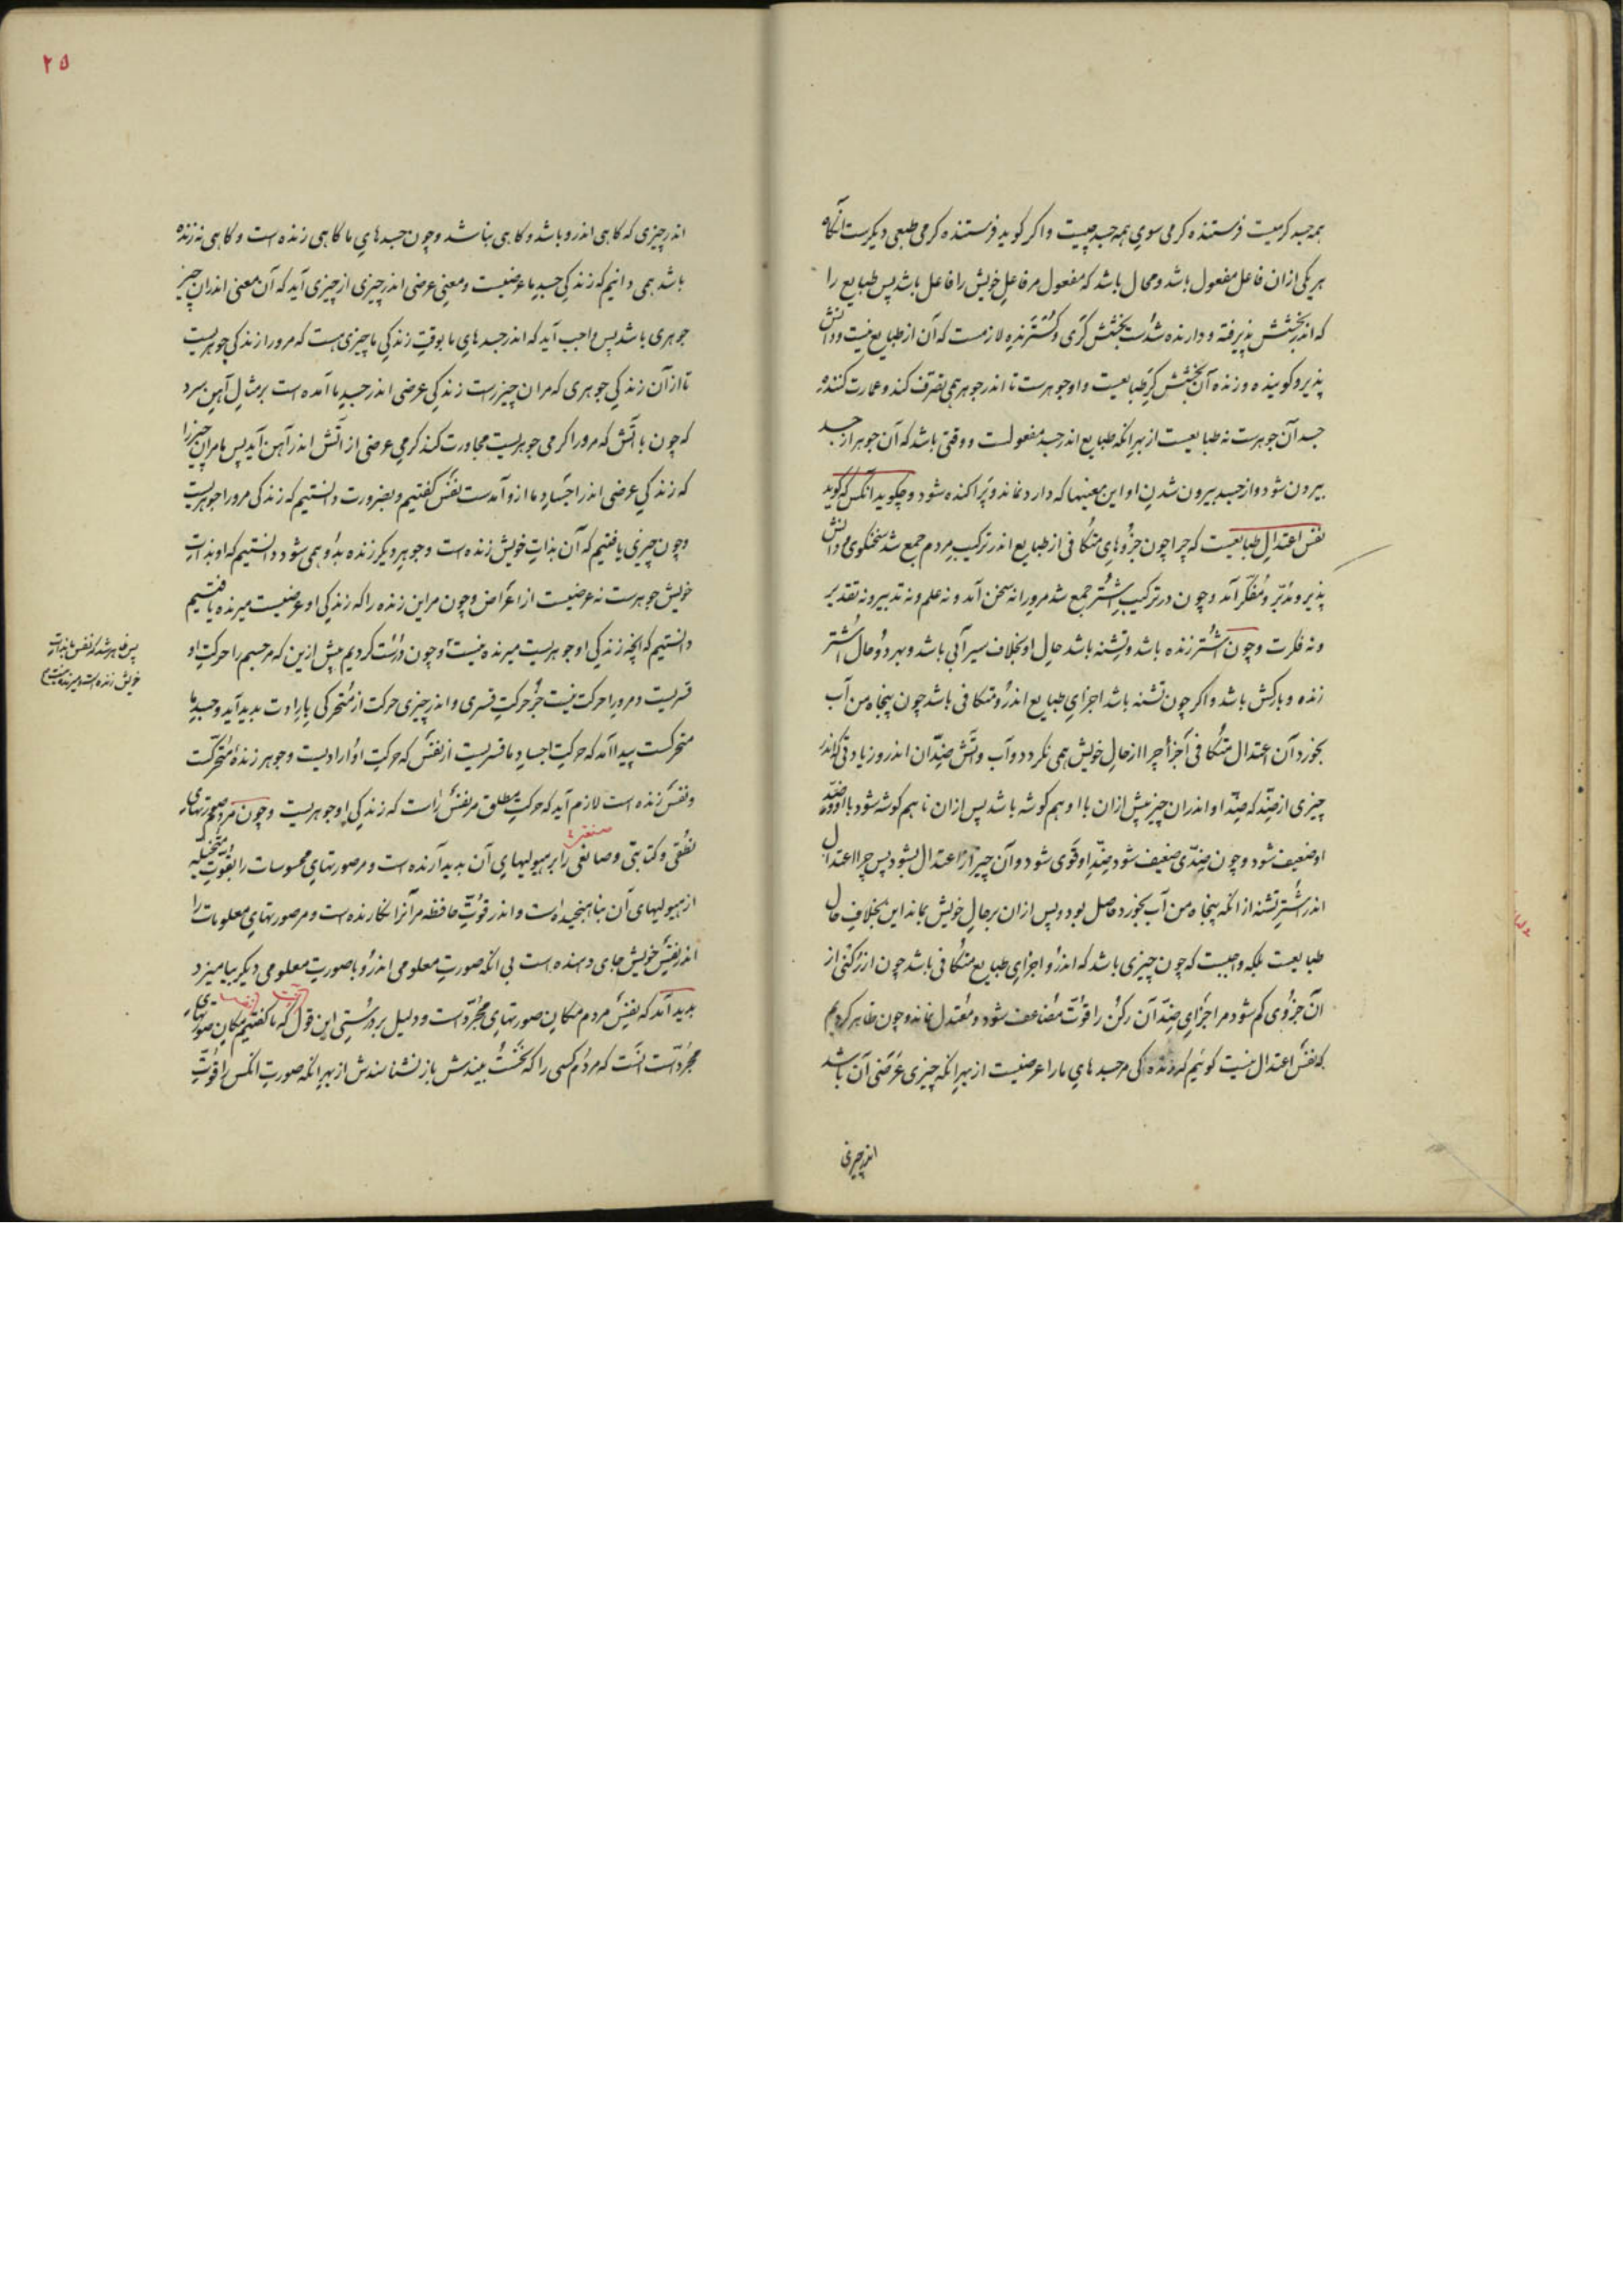 همه جسد گرمیست فرستنده گرمی سوی همه جسد چیست و اگر گوید فرستنده گرمی طبعی دیگرست آنگاه
هر یکی ازان فاعل مفعول باشد و محال باشد که مفعول مر فاعل خویش را فاعل باشد پس طبایع را
که اندر بخشش پذیرفته و دارنده شدست بخشش گری و گسترنده لازمست که آن از طبایع نیست و دانش
پذیر و گوینده و زنده آن بخشش گر طبایعست و او جوهرست تا اندر جوهر همی تصرف کند و عمارت کننده
جسد آن جوهرست نه طبایعست از بهر انکه طبایع اندر جسد مفعولست و وقتی باشد که آن جوهر از جسد
بیرون شود و از جسد بیرون شدن او این معنیها که دارد نماند و پراکنده شود و چگوید انکس که گوید
نفس اعتدال طبایعست که چرا چون جزوهای متکافی از طبایع اندر ترکیب مردم جمع شد سخنگوی و دانش
پذیر و مدبر و مفکر آمد و چون در ترکیب اشتر جمع شد مرورا نه سخن آمد و نه علم و نه تدبیر و نه تقدیر
و نه فکرت و چون اشتر زنده باشد و تشنه باشد حال او بخلاف سیرآبی باشد و بهر دو حال اشتر
زنده و بارکش باشد و اگر چون تشنه باشد اجزای طبایع اندرو متکافی باشد چون پنجاه من آب
بخورد آن اعتدال متکافی اجزا چرا از حال خویش همی نگردد و آب و آتش ضدّان اندر و زیادتی که اندر
چیزی از ضدّ که ضدّ او اندران چیز پیش ازان با او هم گوشه باشد پس ازان نا هم گوشه شود با او و ضدّ
او ضعیف شود و چون ضدّی ضعیف شود ضدّ او قوی شود و آن چیز از اعتدال بشود پس چرا اعتدال
اندر اشتر تشنه از انکه پنجاه من آب بخورد حاصل بود و پس ازان بر حال خویش بماند این بخلاف حال
طبایعست بلکه واجبست که چون چیزی باشد که اندرو اجزای طبایع متکافی باشد چون از رکنی از
آن جزوی کم شود مر اجزای ضدّ آن رکن را قوّت مضاعف شود و معتدل نماند و چون ظاهر کردیم
که نفس اعتدال نیست گوئیم که زندگی مر جسدهای ما را عرضیست از بهر انکه چیزی عرضی آن باشد
اندر چیزی
۲۵
اندر چیزی که گاهی اندرو باشد و گاهی نباشد و چون جسدهای ما گاهی زنده است و گاهی نه زنده
باشد همی دانیم که زندگی جسد ما عرضیست و معنی عرضی اندر چیزی از چیزی آید که آن معنی اندران چیز
جوهری باشد پس واجب آید که اندر جسدهای ما بوقت زندگی ما چیزی هست که مرورا زندگی جوهریست
تا از آن زندگی جوهری که مر ان چیزراست زندگی عرضی اندر جسد ما آمده است بر مثال آهن سرد
که چون با آتش که مرورا گرمی جوهریست مجاورت کند گرمی عرضی از آتش اندر آهن آید پس ما مران چیز را
که زندگی عرضی اندر اجساد ما ازو آمدست نفس گفتیم و بضرورت دانستیم که زندگی مرورا جوهریست
و چون چیزی یافتیم که آن بذات خویش زنده است و جوهر دیگر زنده بدو همی شود دانستیم که او بذات
خویش جوهرست نه عرضیست از اعراض و چون مراین زنده را که زندگی او عرضیست میرنده یافتیم
دانستیم که انچه زندگی او جوهریست میرنده نیست و چون درست کردیم پیش ازین که مر جسم را حرکت او
قسریست و مرورا حرکت نیست جز حرکت قسری و اندر چیزی حرکت از متحرکی بارادت پدید آید و جسد ما
متحرکست پیدا آمد که حرکت اجساد ما قسریست از نفس که حرکت او ارادیست و جوهر زنده متحرکست
و نفس زنده است لازم آید که حرکت مطلق مر نفس راست که زندگی او جوهریست و چون مردم مر صورتهای
نطقی و کتابتی و صانعی را بر هیولیهای آن پدید آرنده است و مر صورتهای محسوسات را بقوت متخیله
از هیولیهای آن بناهنجیده است و اندر قوت حافظه مر آنرا نگارنده است و مر صورتهای معلومات را
اندر نفس خویش جای دهنده است بی انکه صورت معلومی اندرو با صورت معلومی دیگر بیامیزد
پدید آمد که نفس مردم مکان صورتهای مجرّدست و دلیل بر درستی این قول که ما گفتیم مکان صورتهای
مجرّدست آنست که مردم کسی را که نخست بیندش باز نشناسندش از بهر انکه صورت انکس را قوّت
پس ظاهر شد که نفس ما بذات
خویش زنده است و میرنده نیست